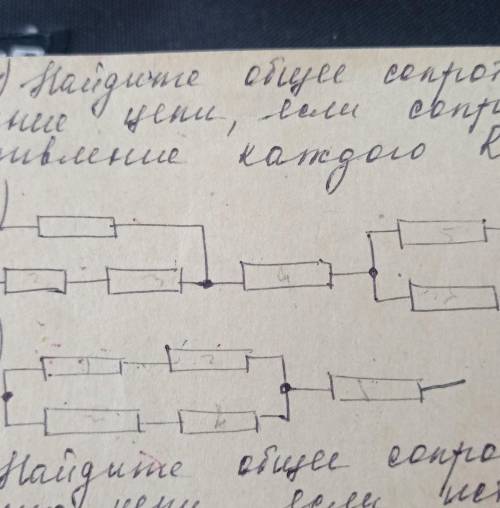 ) Найдите общее сопрот
ние цепи, если сопри
ивление каждого К
4
5
2
Найдите общее сопро
цепи, если ист